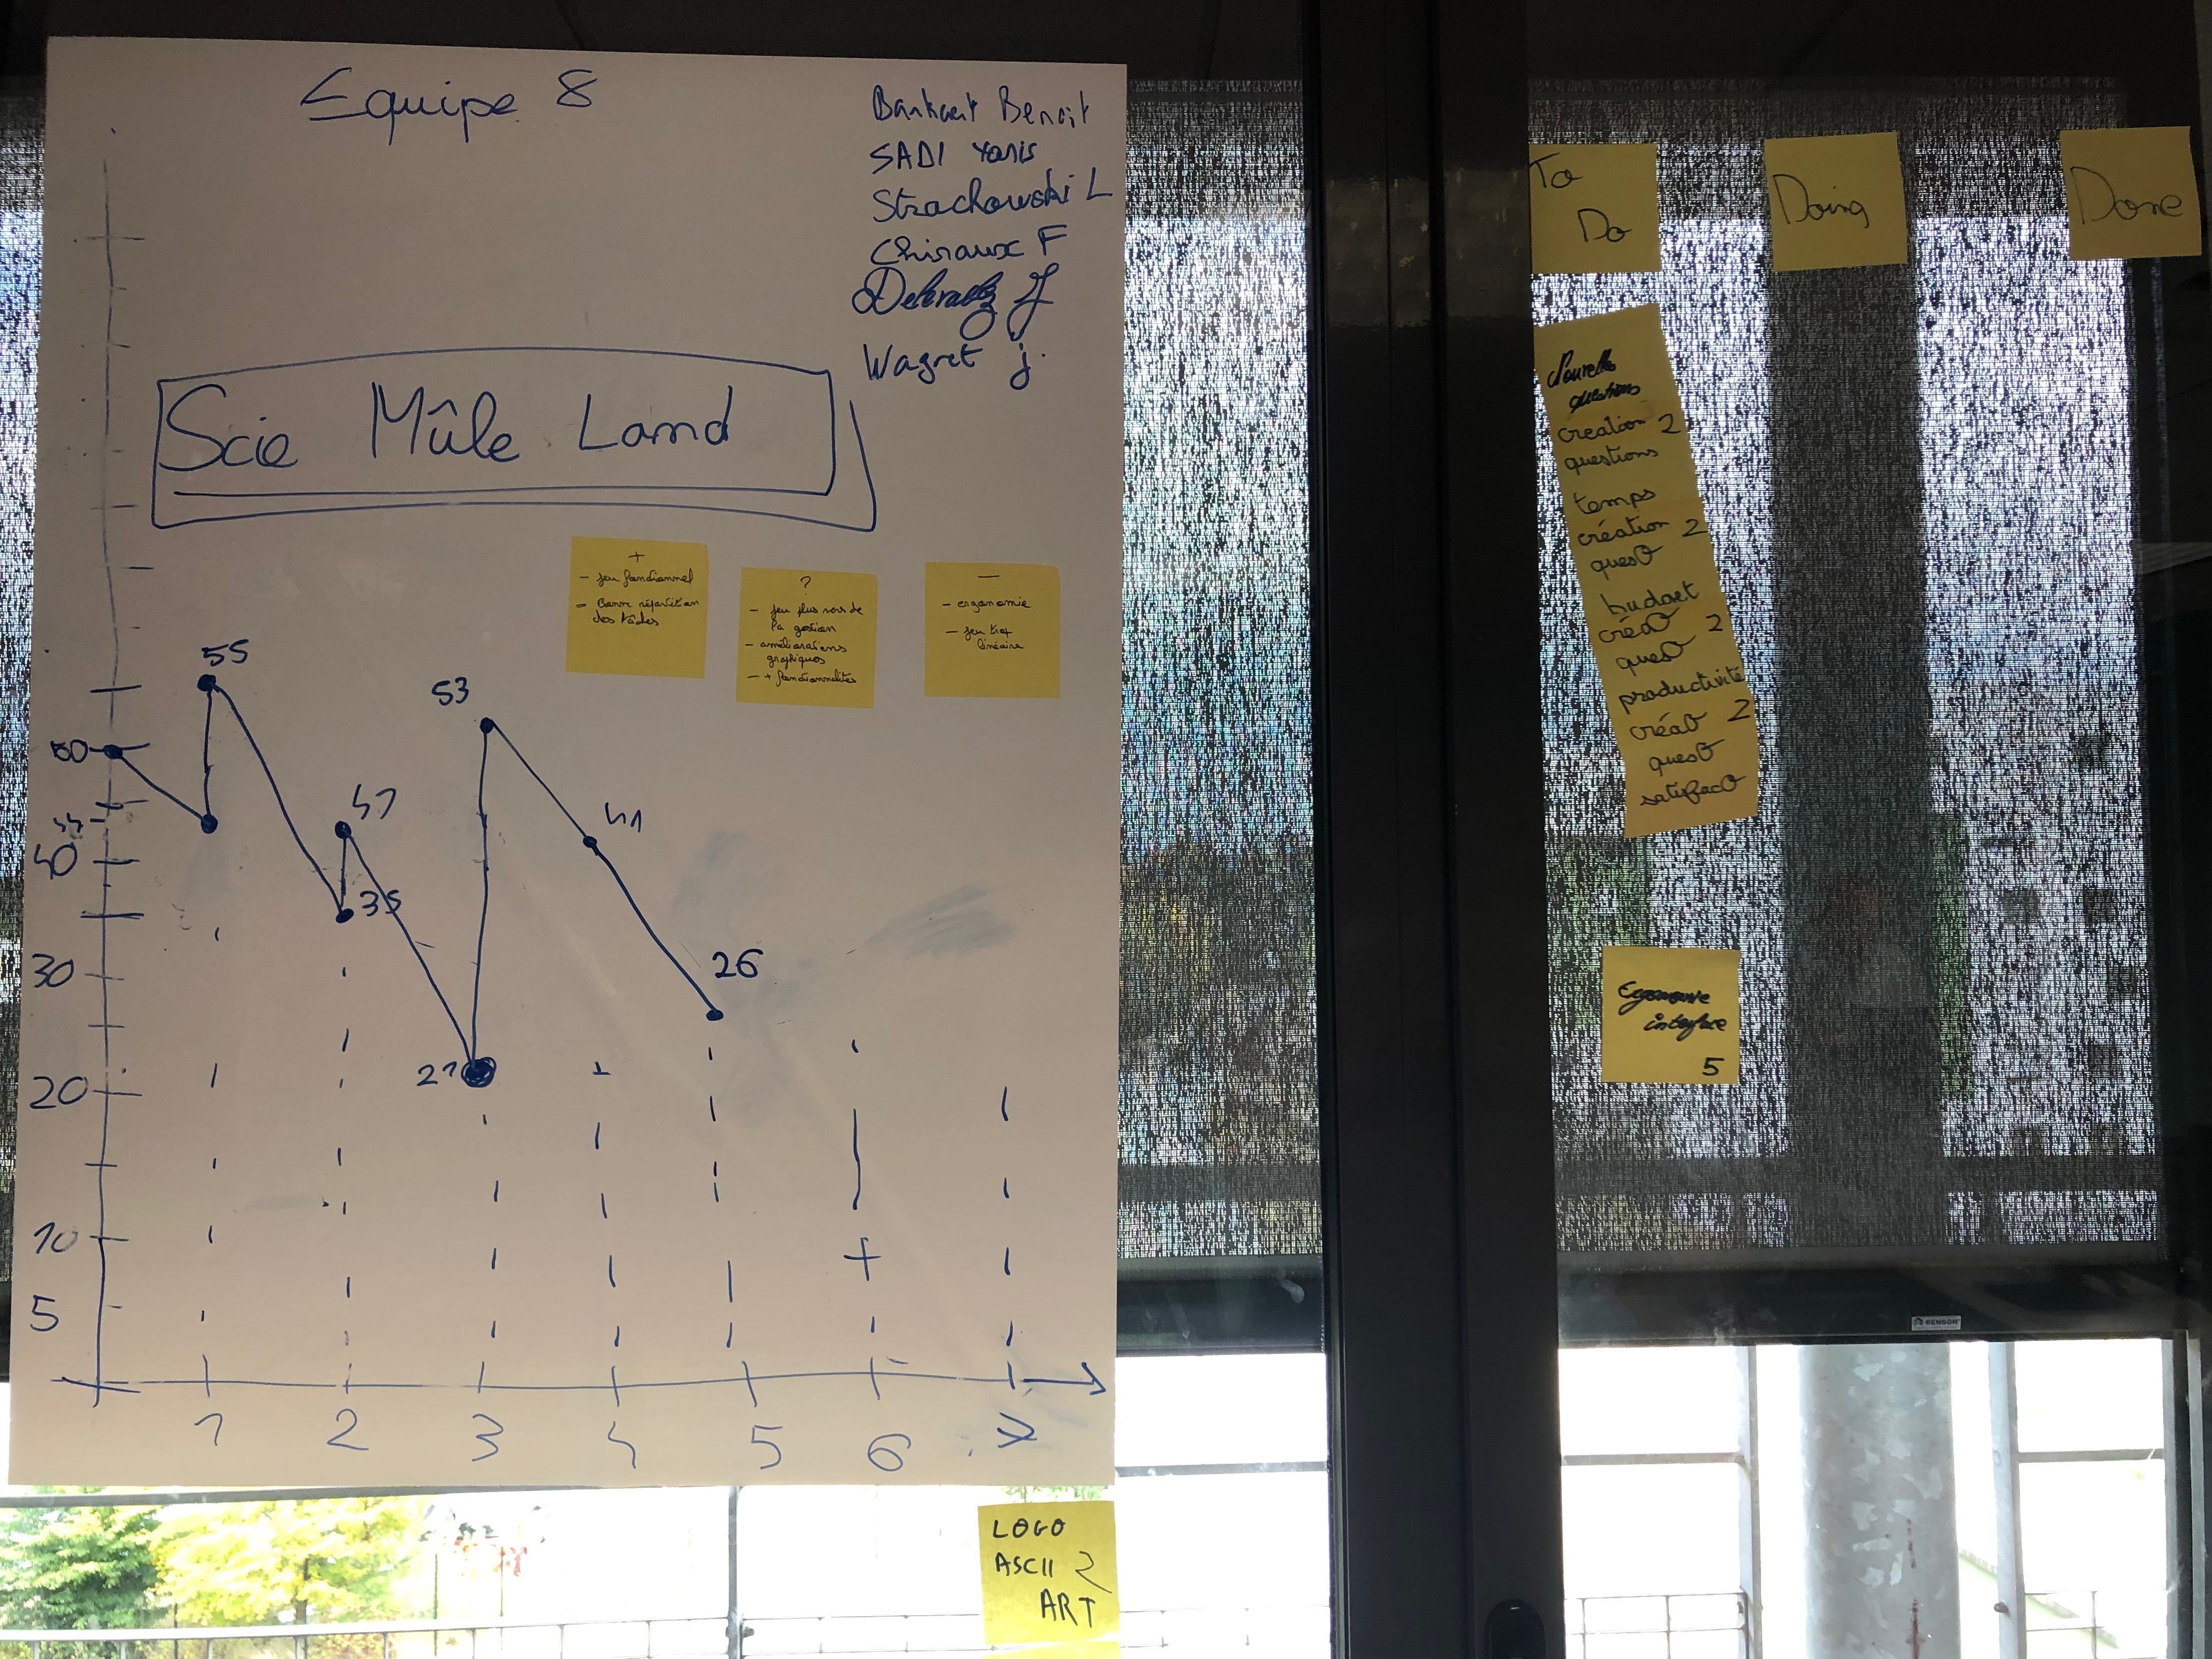 Equipe 8
Bankaert Benoit
SADI Yanis
Strachowski L
Chiraux F
J
Wagret j.
Scie Mûle Land
+
- jeu fonctionnel
- Bonne répartition
des tâches
?
- jeu plus vers de
la gestion
- améliorations
graphiques
- + fonctionnalités
-
- ergonomie
- jeu trop
linéaire
55
53
50
47
41
44
40
35
30
26
21
20
10
5
1 2 3 4 5 6
LOGO
ASCII 2
ART
To
Do
Doing
Done
Nouvelle
questions
creation 2
questions
temps
création 2
quesθ
budget
créaθ 2
quesθ
productivité
créaθ 2
quesθ
satisfacθ
Ergonomie
interface
5
RENSON